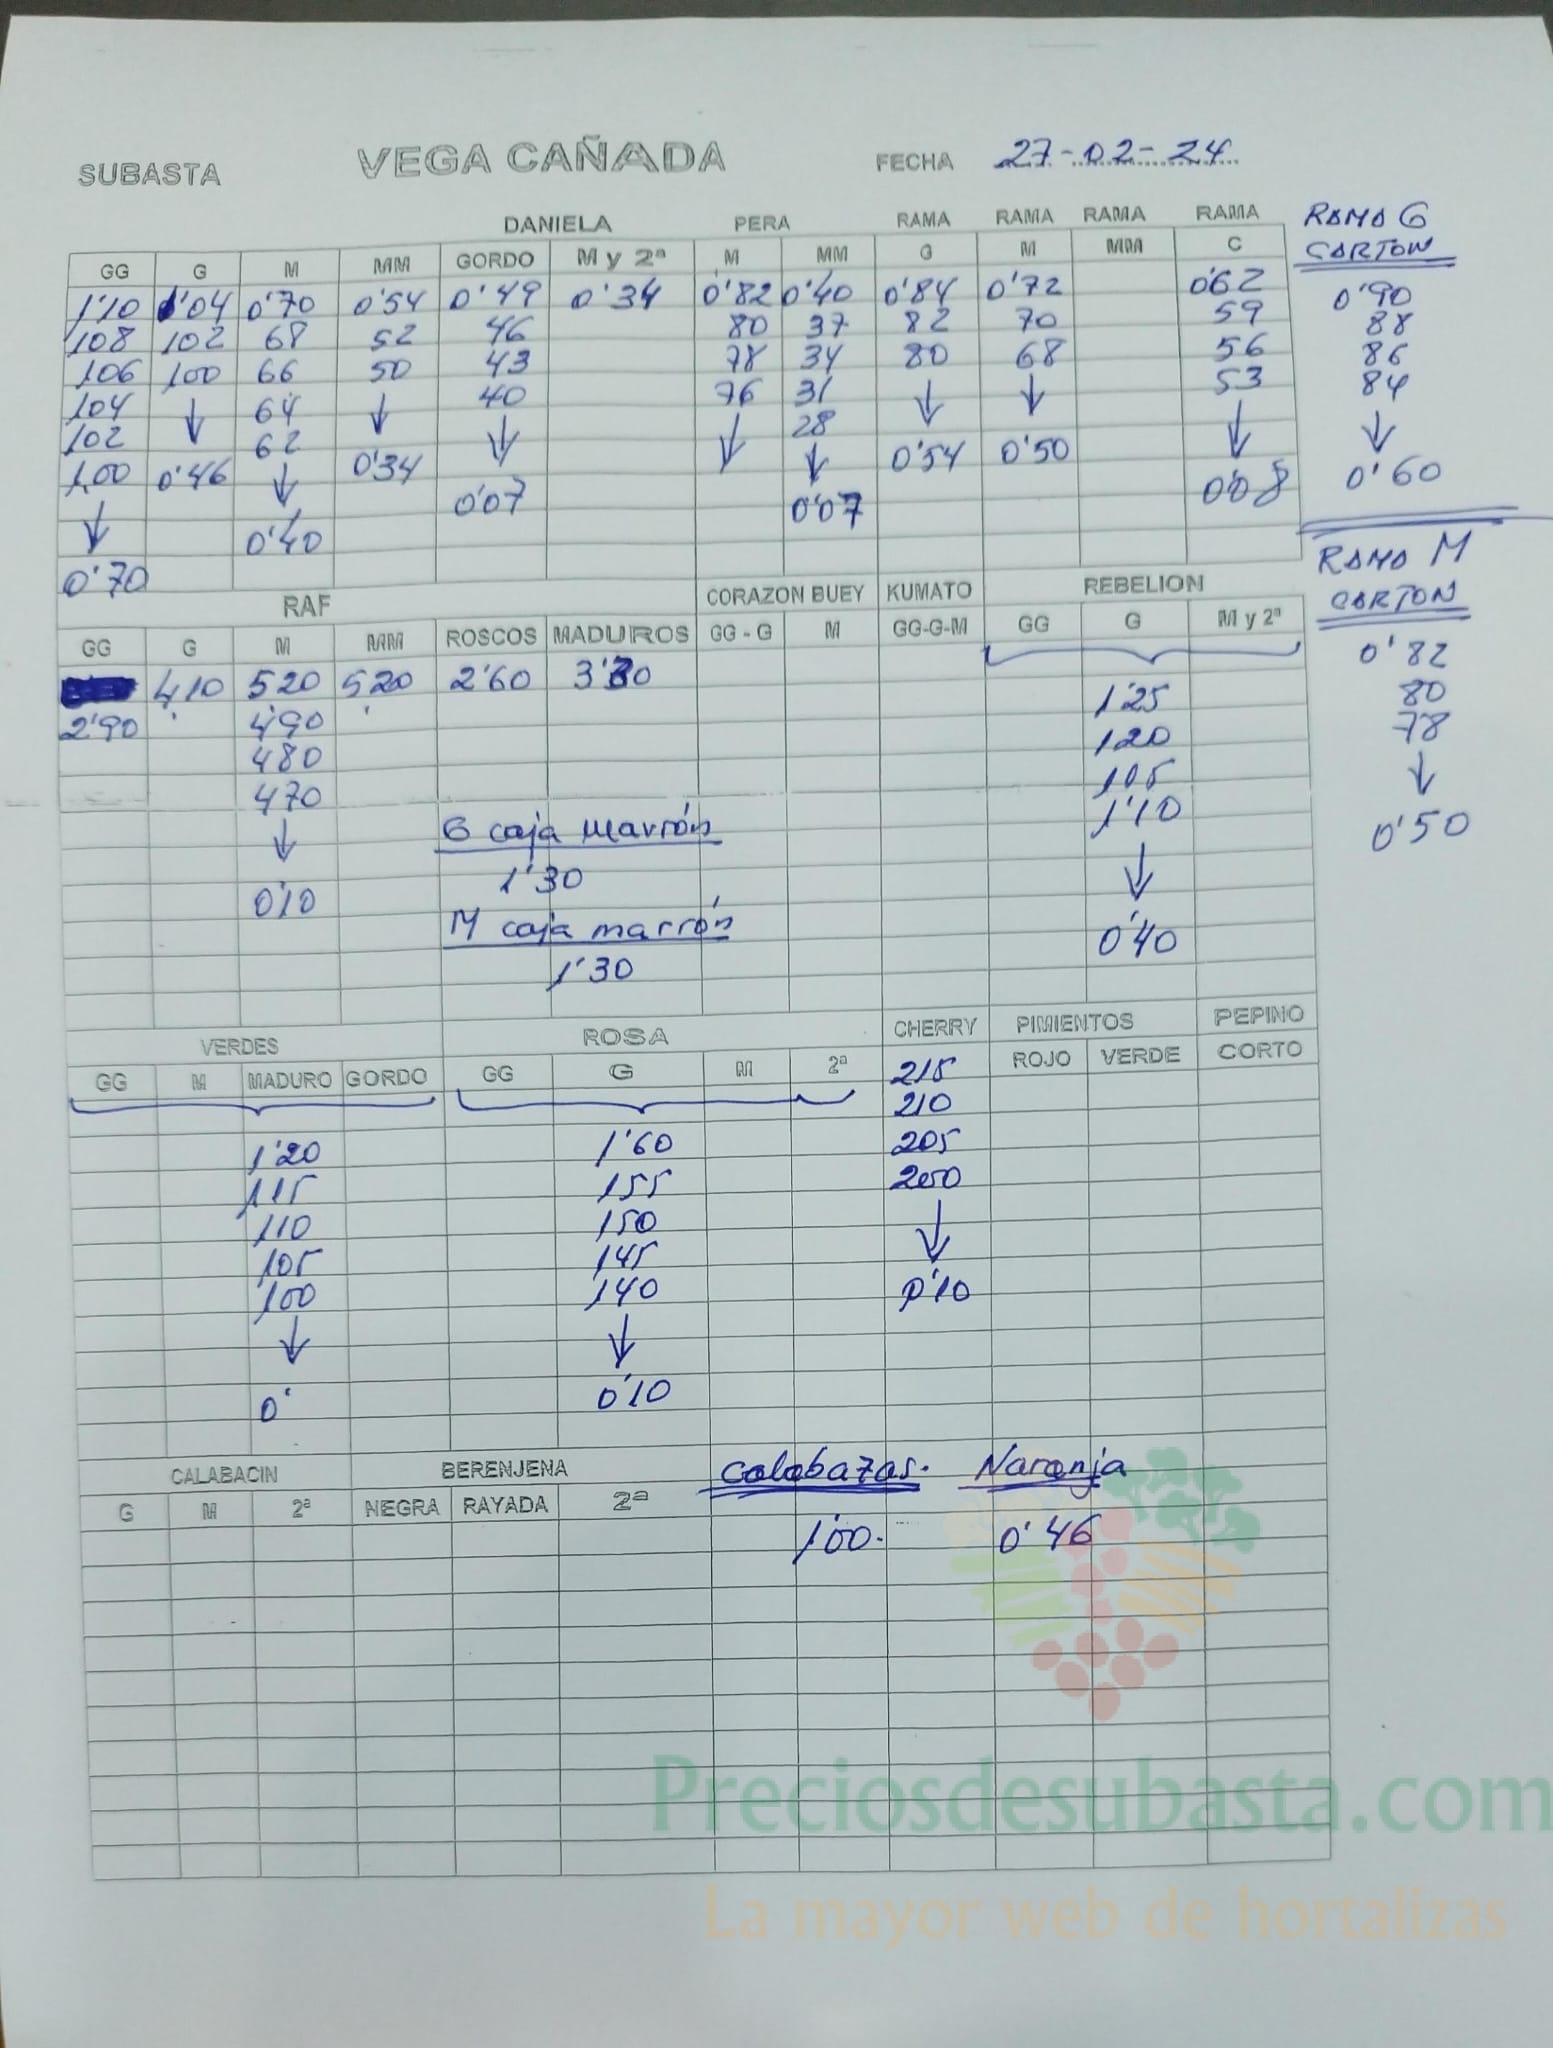 SUBASTA VEGA CAÑADA FECHA 27-02-24
DANIELA PERA RAMA RAMA RAMA RAMA RAMA G
GG G M MM GORDO M y 2ª M MM G M MM C CARTON
1'10 1'04 0'70 0'54 0'49 0'34 0'82 0'40 0'84 0'72 0'62 0'90
108 102 68 52 46 80 37 82 70 59 88
106 100 66 50 43 78 34 80 68 56 86
104 ↓ 64 ↓ 40 76 31 ↓ ↓ 53 84
102 62 ↓ ↓ 28 ↓ ↓
1,00 0'46 ↓ 0'34 ↓ 0'54 0'50 0'60
↓ 0'07 0'07 0'08
0'40
0'70
RAMA M
CARTON
0'82
80
78
↓
0'50
RAF CORAZON BUEY KUMATO REBELION
GG G M MM ROSCOS MADUROS GG - G M GG-G-M GG G M y 2ª
4,10 5'20 5'20 2'60 3'30 1'25
2'90 4'90 120
480 105
470 1'10
↓ ↓
0'10 0'40
G caja marrón
1'30
M caja marrón
1'30
VERDES ROSA CHERRY PIMIENTOS PEPINO
GG M MADURO GORDO GG G M 2ª ROJO VERDE CORTO
215
210
1'20 1'60 205
115 155 200
110 150 ↓
105 145
100 140 0'10
↓ ↓
0' 0'10
CALABACIN BERENJENA Calabazas. Naranja
G M 2ª NEGRA RAYADA 2ª
1'00. 0'46
Preciosdesubasta.com
La mayor web de hortalizas